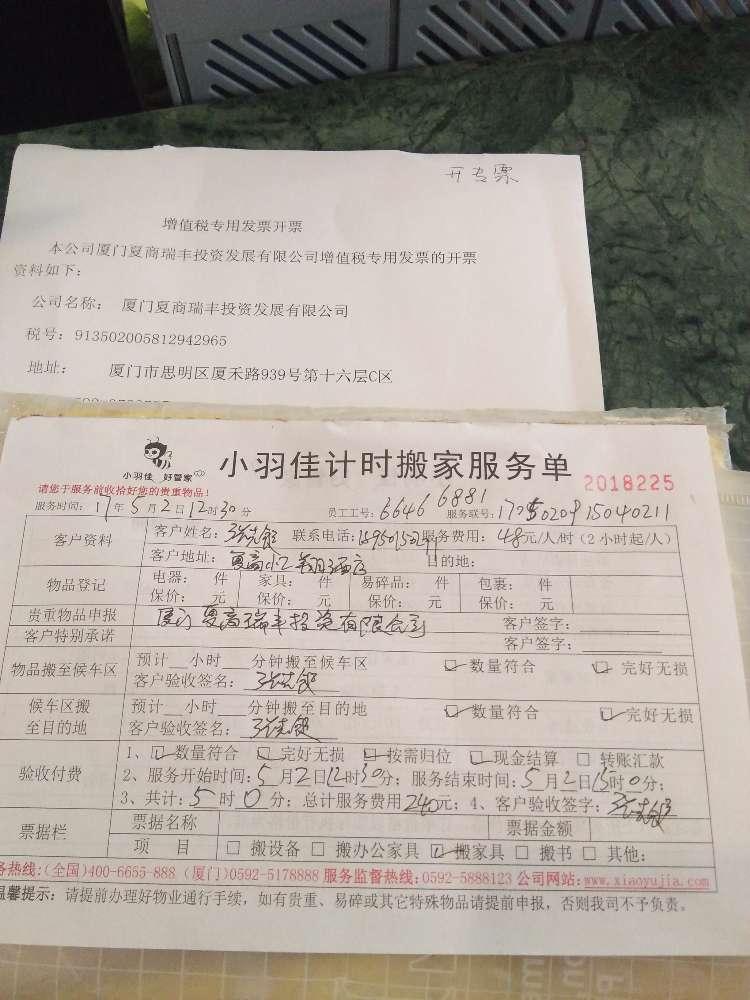 开专票
增值税专用发票开票
本公司厦门夏商瑞丰投资发展有限公司增值税专用发票的开票
资料如下:
公司名称: 厦门夏商瑞丰投资发展有限公司
税号: 913502005812942965
地址: 厦门市思明区厦禾路939号第十六层C区
小羽佳 好管家
小羽佳计时搬家服务单
2018225
请您于服务前收拾好您的贵重物品!
服务时间: 17年5月2日12时30分 员工工号: 6646 6881 服务联号:
客户资料
客户姓名: 联系电话: 服务费用: 48元/人/时 (2小时起/人)
客户地址: 目的地:
物品登记
电器: 件 家具: 件 易碎品: 件 包裹: 件
保价: 元 保价: 元 保价: 元 保价: 元
贵重物品申报 厦门夏商瑞丰投资有限公司 客户签字:
客户特别承诺 客户签字:
物品搬至候车区
预计__小时___分钟搬至候车区 数量符合 完好无损
客户验收签名:
候车区搬
至目的地
预计__小时___分钟搬至目的地 数量符合 完好无损
客户验收签名:
验收付费
1、数量符合 完好无损 按需归位 现金结算 转账汇款
2、服务开始时间: 5月2日12时30分; 服务结束时间: 5月2日15时0分;
3、共计: 5时0分; 总计服务费用240元; 4、客户验收签字:
票据栏
票据名称 票据金额
项 目 搬设备 搬办公家具 搬家具 搬书 其他:
务热线: (全国)400-6655-888 (厦门)0592-5178888 服务监督热线: 0592-5888123 公司网站: www.xiaoyujia.com
温馨提示: 请提前办理好物业通行手续, 如有贵重、易碎或其它特殊物品请提前申报, 否则我司不予负责。